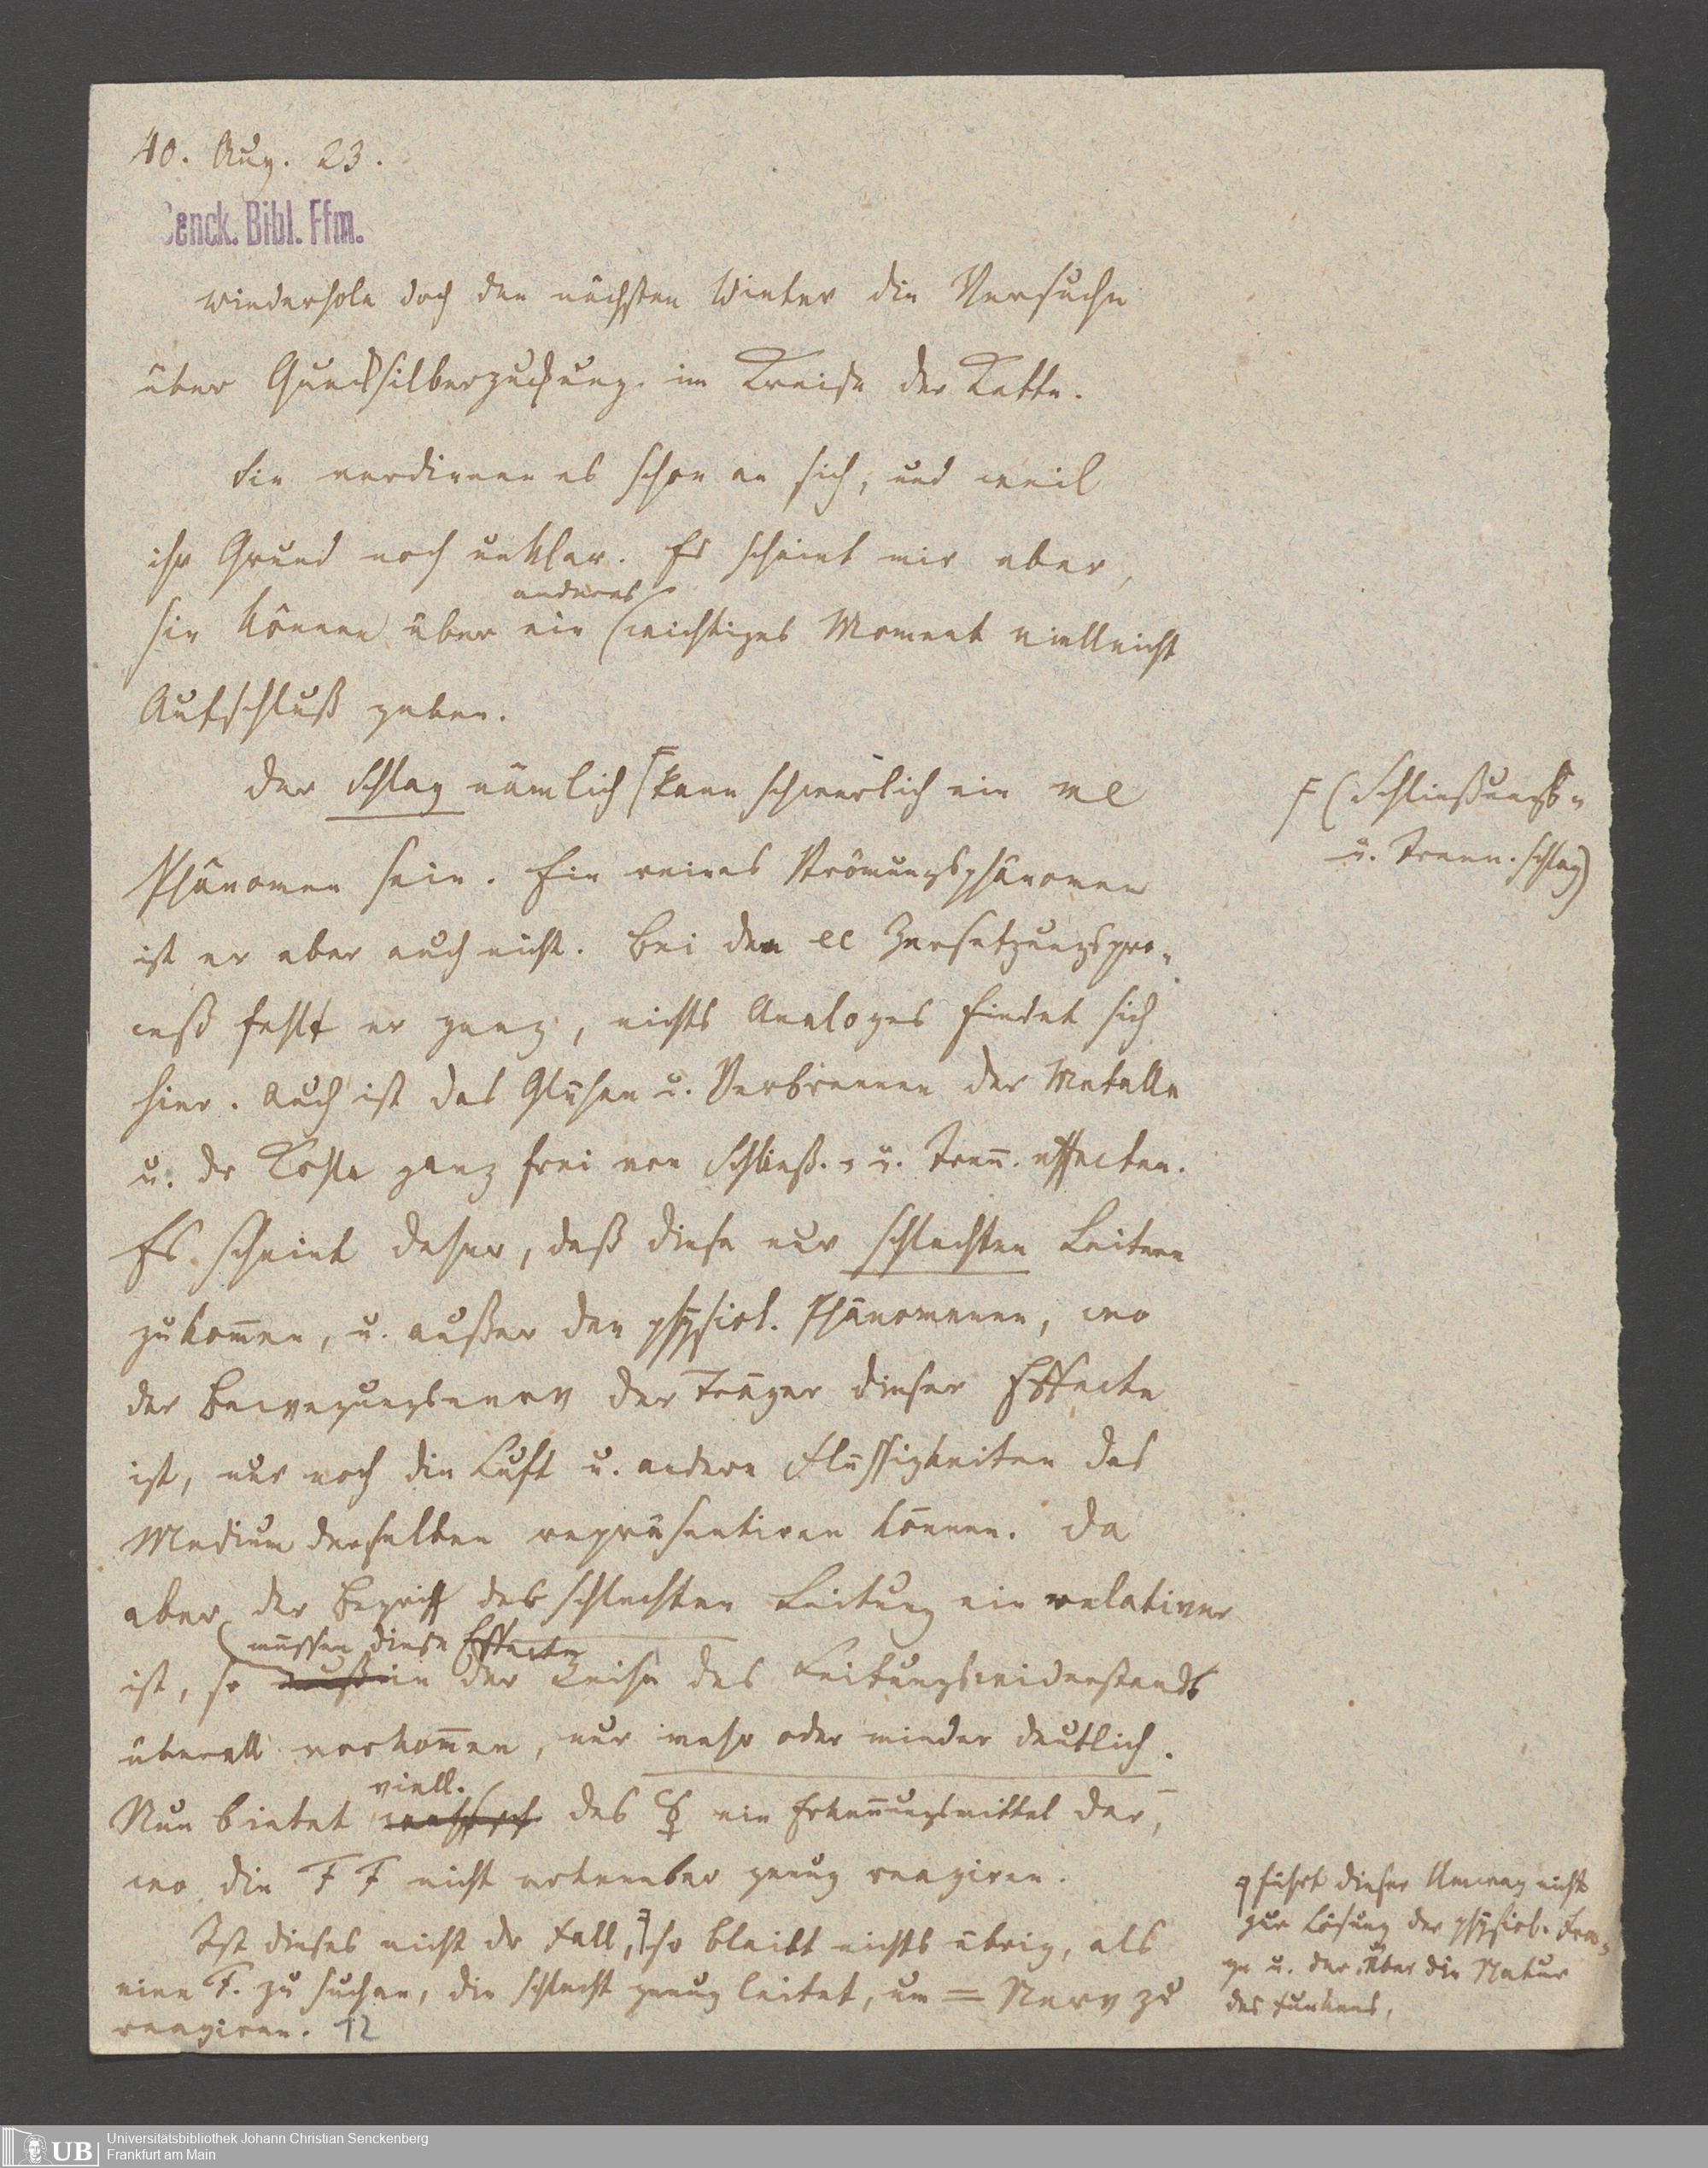 10. Aug. 23.
Senck. Bibl. Ffm.
Wiederhole doch den nächsten Winter die Versuche
über Quecksilberzuckung. im Kreise der Kette.
Sie verdienen es schon an sich, und weil
ihr Grund noch unklar. Es scheint mir aber,
anderes
sie können über ein wichtiges Moment vielleicht
Aufschluß geben.
Der Schlag nämlich kann schwerlich ein me
Phänomen sein. Ein reines Strömungsphänomen
F (Schließungs-
u. Trenn. schlag)
ist er aber auch nicht. Bei den ec Zersetzungspro-
ceß fehlt er ganz, nichts Analoges findet sich
hier. Auch ist das Glühen u. Verbrennen der Metalle
u. der Kohle ganz frei von Schließ.- u. Trenn. effecten.
Es scheint daher, daß diese nur schlechten Leitern
zukommen, u. außer den physiol. Phänomenen, wo
der Bewegungsnerv der Träger dieser Effecte
ist, nur noch die Luft u. andere Flüssigkeiten das
Medium derselben repräsentiren können. Da
aber der Begriff des schlechten Leitung ein relativer
müssen diese Effecte
ist, so muß in der Reihe des Leitungswiderstands
überall vorkommen, nur mehr oder minder deutlich.
viell.
Nun bietet das ☿ ein Erkennungsmittel dar,
wo die F F nicht erkennbar genug reagiren.
Ist dieses nicht der Fall, so bleibt nichts übrig, als
eine F. zu suchen, die schlecht genug leitet, um = Nerv zu
reagiren. 12
führt dieser Umweg nicht
zur Lösung der physiol. Fra-
ge u. der über die Natur
des Funkens,
Universitätsbibliothek Johann Christian Senckenberg
Frankfurt am Main
UB